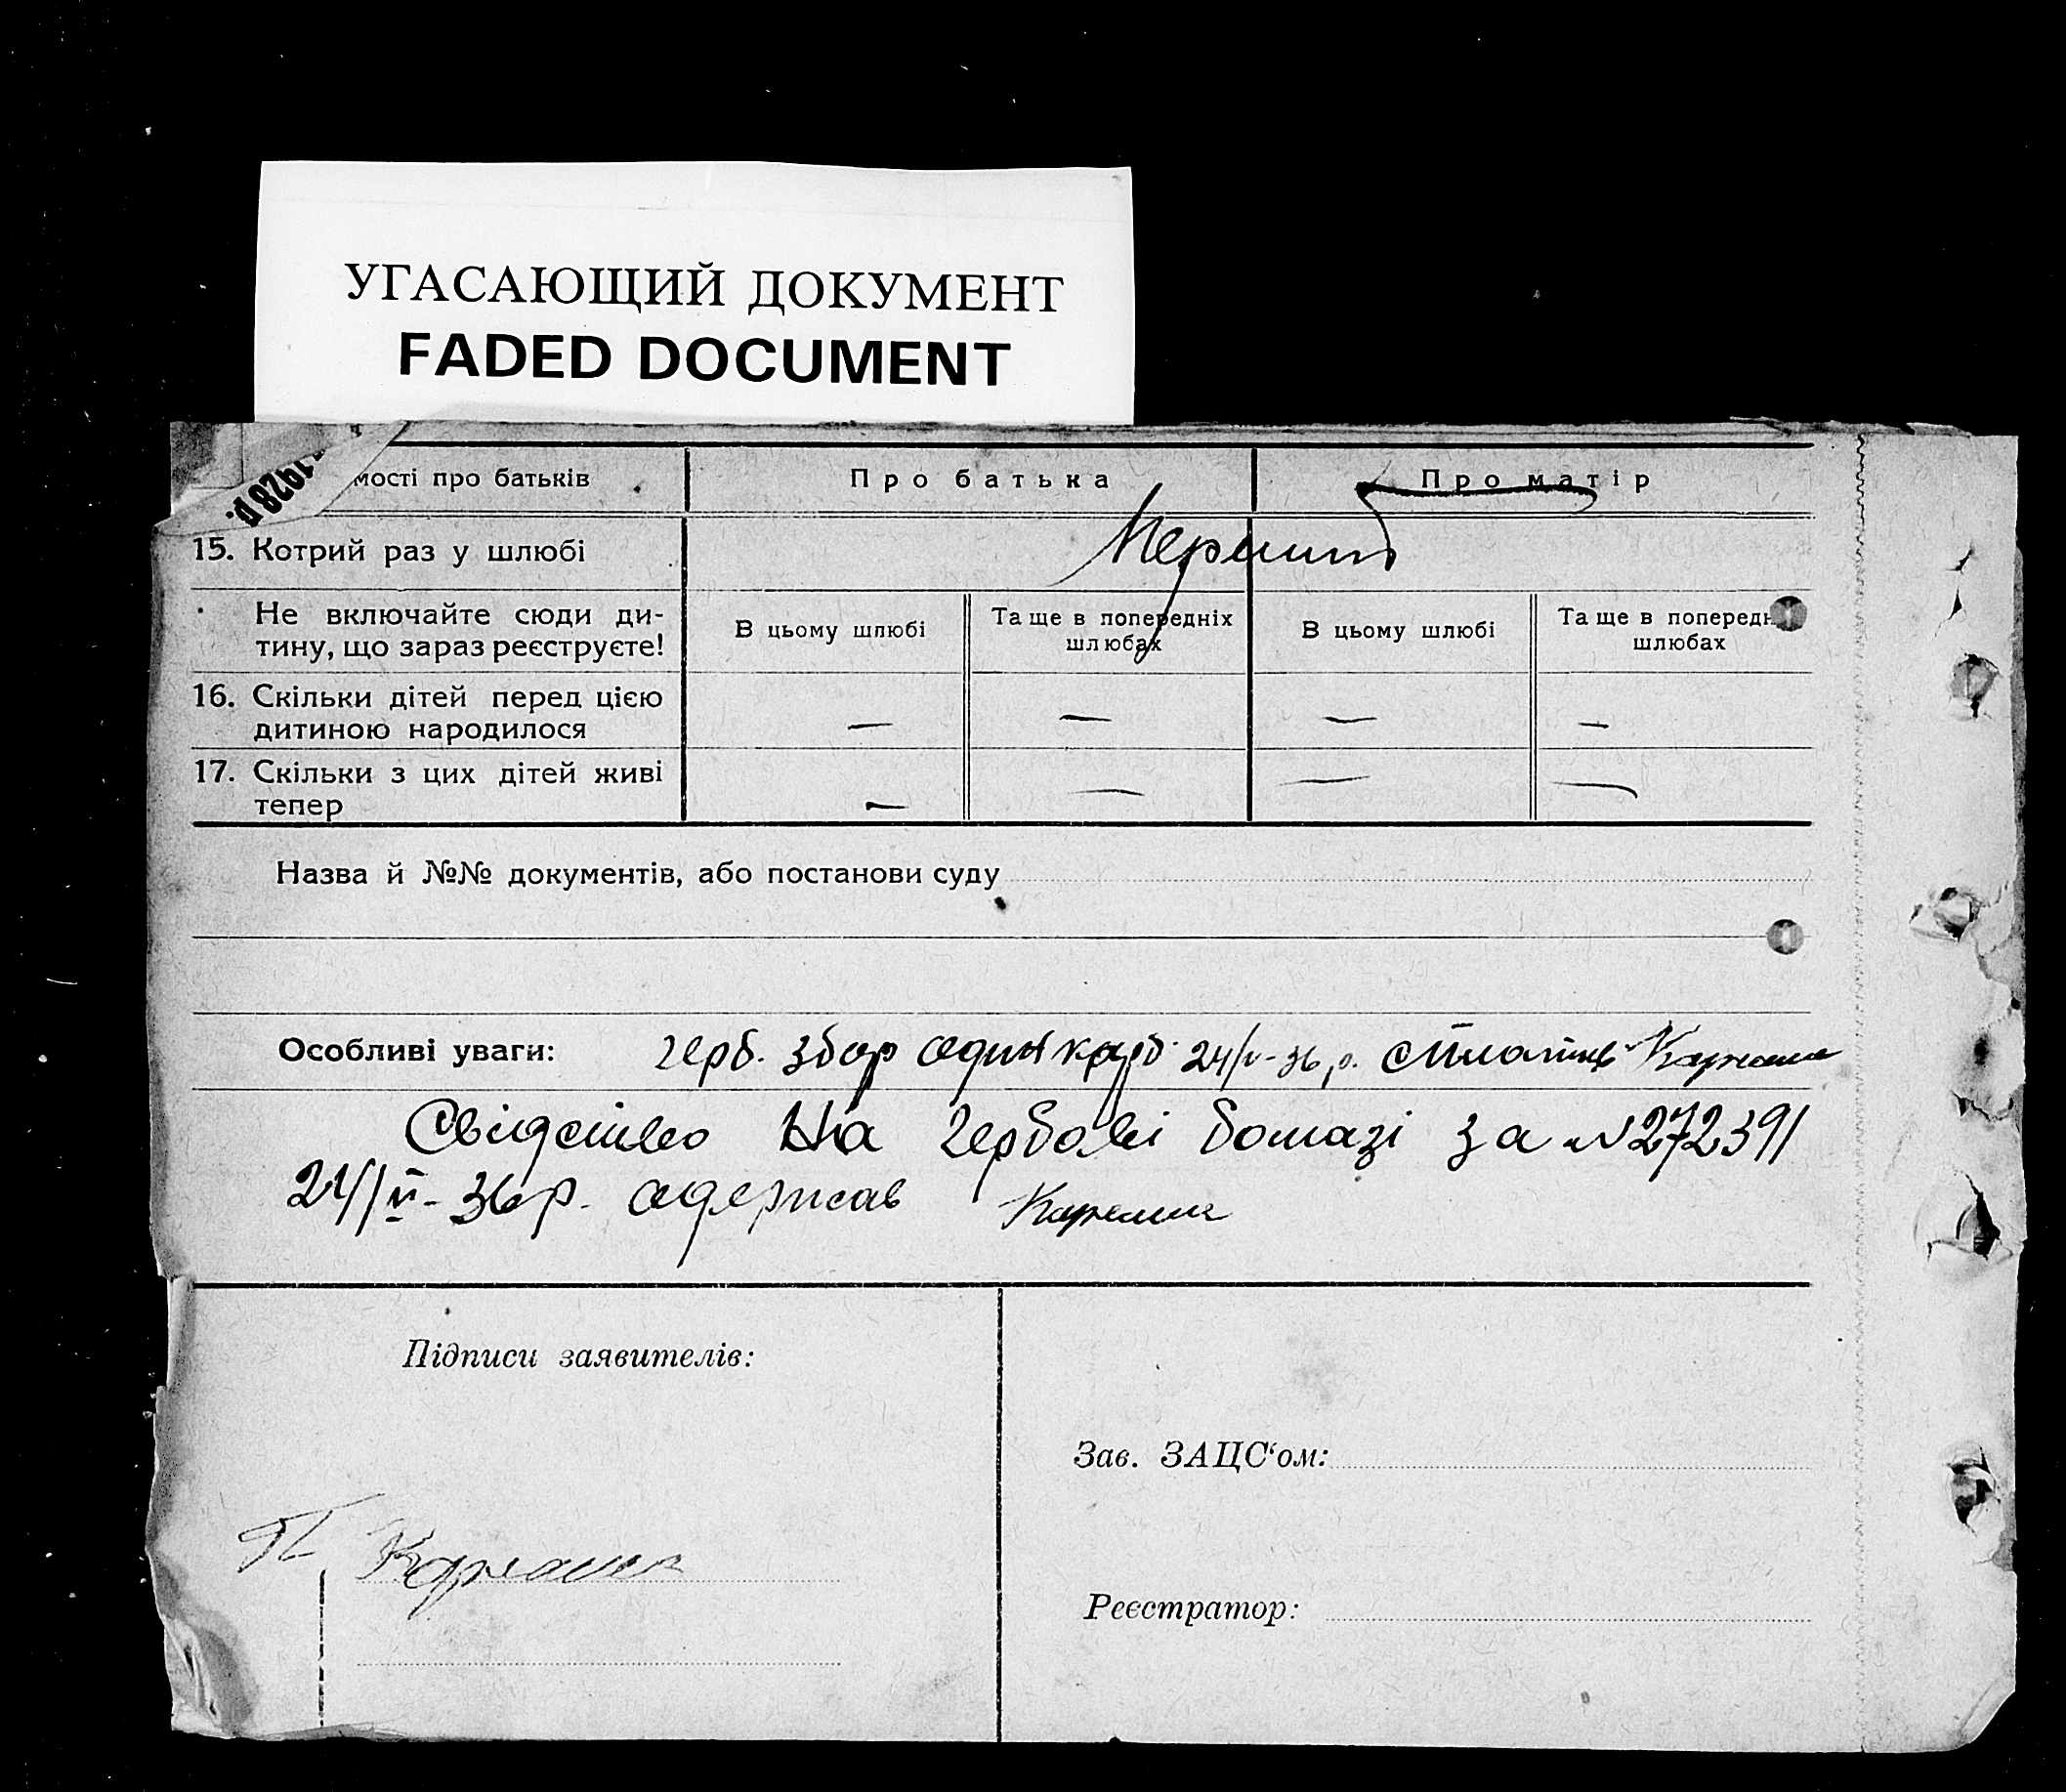 УГАСАЮЩИЙ ДОКУМЕНТ
FADED DOCUMENT
1928 р.
мості про батьків
Про батька
Про матір
15. Котрий раз у шлюбі
Перший
Не включайте сюди ди-
тину, що зараз реєструєте!
В цьому шлюбі
Та ще в попередніх
шлюбах
В цьому шлюбі
Та ще в поперед
шлюбах
16. Скільки дітей перед цією
дитиною народилося
— — — —
17. Скільки з цих дітей живі
тепер
— — — —
Назва й №№ документів, або постанови суду
Особливі уваги: герб. збор один карб. 24/V-36 р. сплатив
Свідоцтво на гербові бомазі за №272391
24/V-36 р. одержав
Підписи заявителів:
Зав. ЗАЦС‘ом:
Реєстратор: